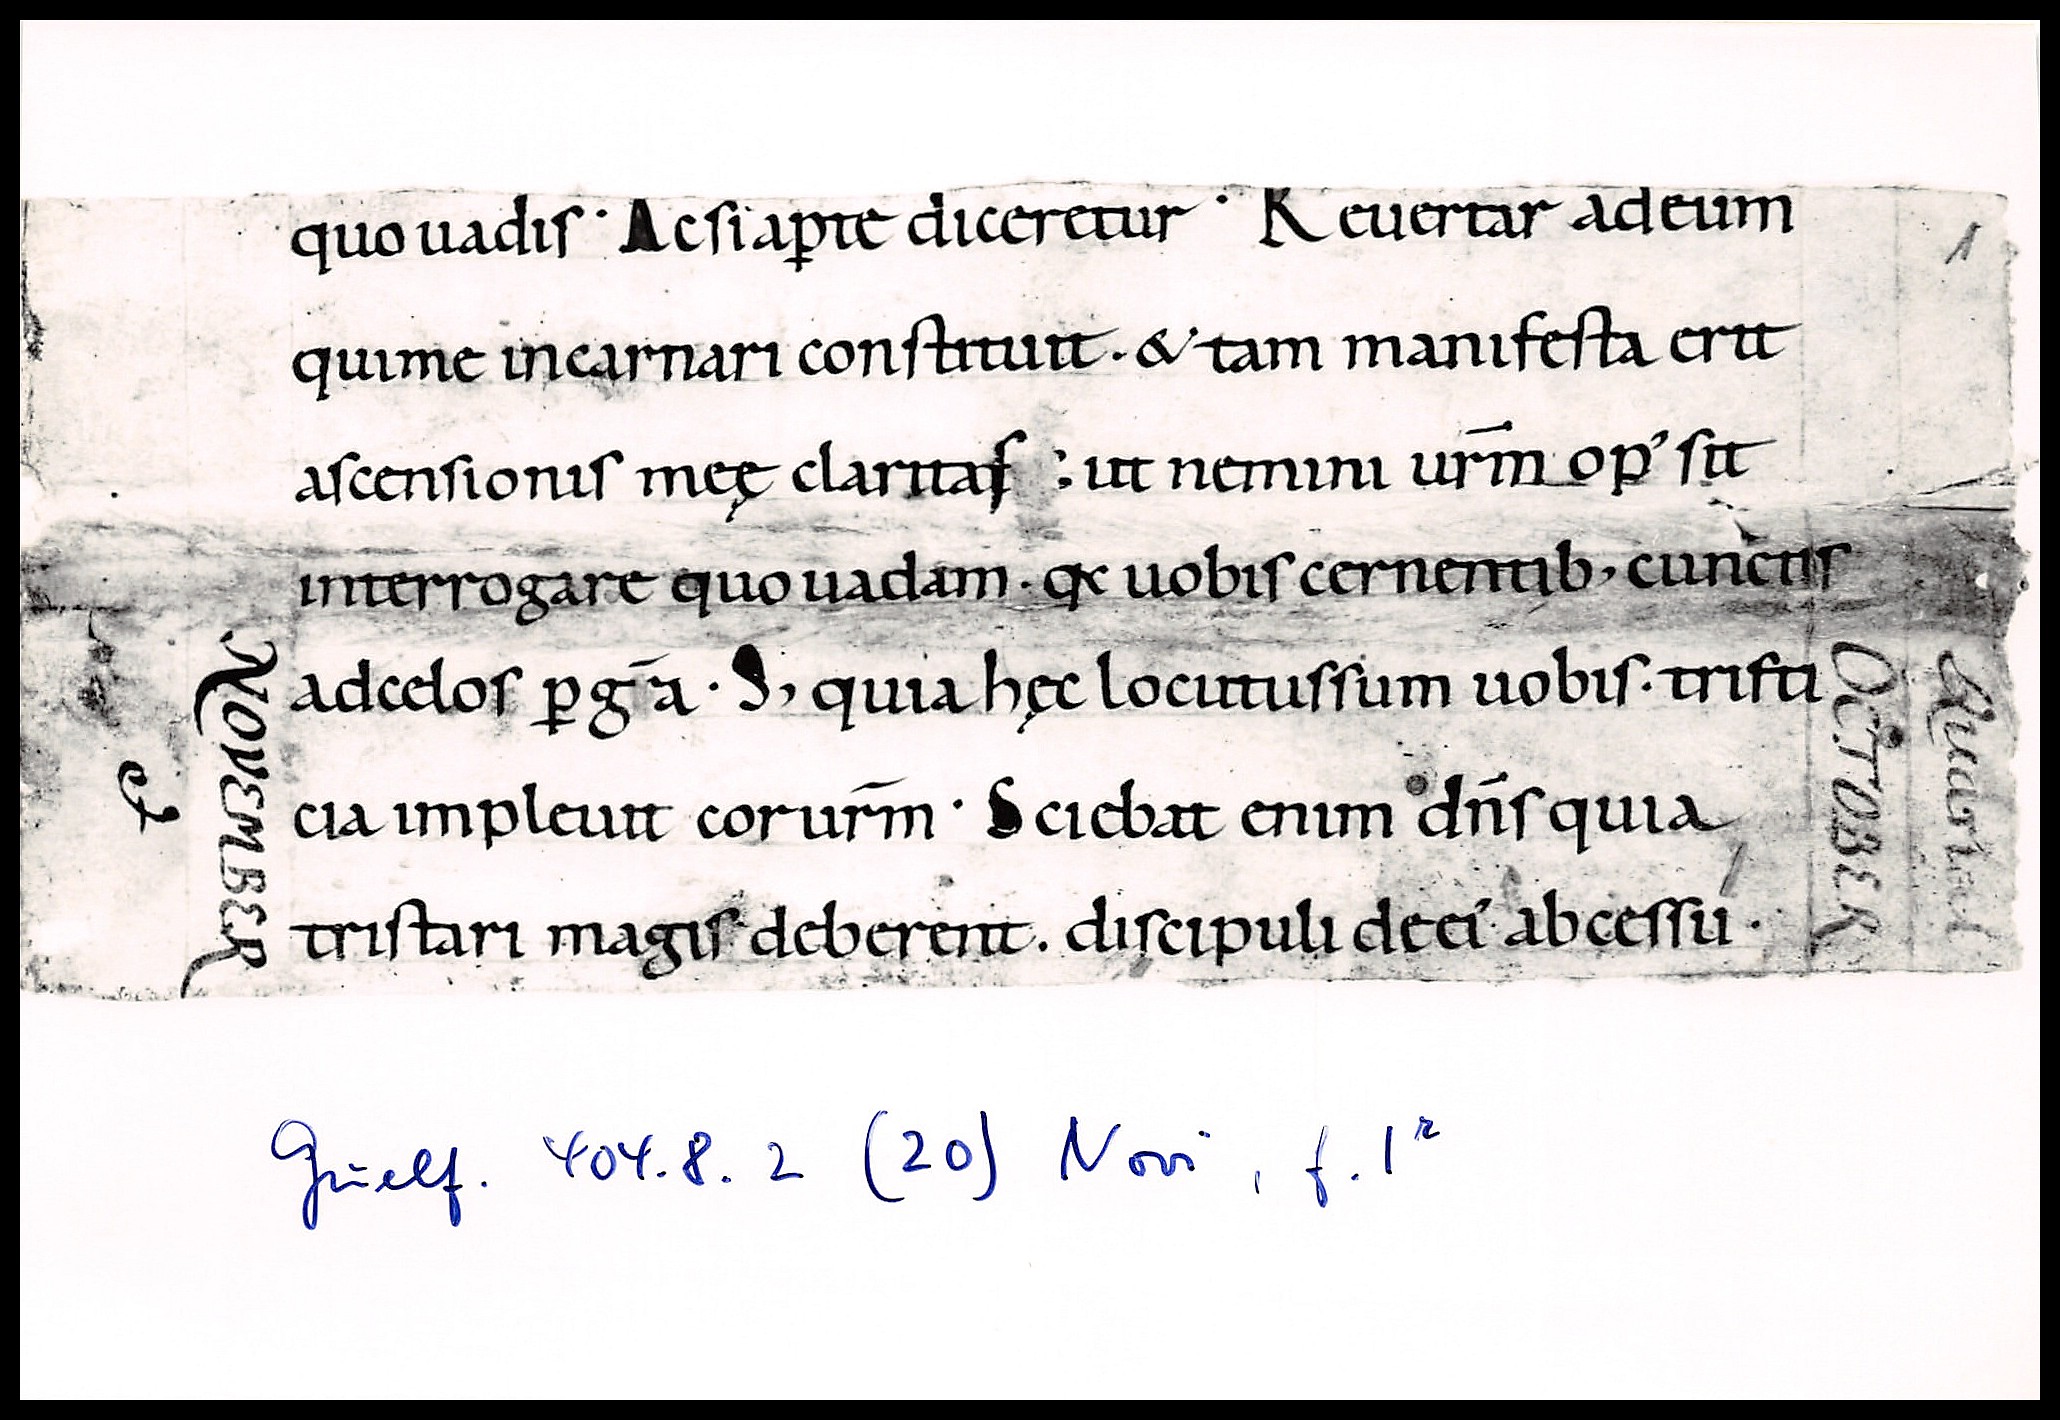 quo uadis · Ac si ap̱te diceretur · Reuertar ad eum
1
qui me incarnari constituit . & tam manifesta erit
ascensionis meę claritas : ut nemini ur̄m op' sit
interrogare quo uadam . qc uobis cernentib, cunctis
ad cęlos ꝑgā . S, quia hęc locutus sum uobis . tristi
cia impleuit cor ur̄m · Sciebat enim dn̄s quia
tristari magis deberent . discipuli de ei' abcessu .
NOVEMBER
OCTOBER
Guelf. 404.8.2 (20) Novi, f. 1r